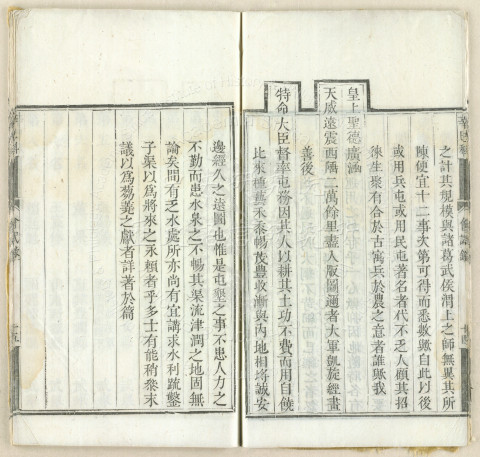 之計其規模與諸葛武侯渭上之師無異其所
陳便宜十二事次第可得而悉數歟自此以後
或用兵屯或用民屯著名者代不乏人顧其招
徠生聚有合於古寓兵於農之意者誰歟我
皇上聖德廣涵
天威遠震西陲二萬餘里盡入版圖邇者大軍凱旋經畫
善後
特命大臣督率屯務因其人以耕其土功不費而用自饒
比來種藝禾黍暢茂豐收漸與內地相埒誠安
十四
邊經久之遠圖也惟是屯墾之事不患人力之
不勤而患水泉之不暢其渠流津潤之地固無
論矣間有乏水處所亦尚有宜講求水利疏鑿
子渠以爲將來之永賴者乎多士有能稍發末
議以爲芻蕘之獻者詳著於篇
十五